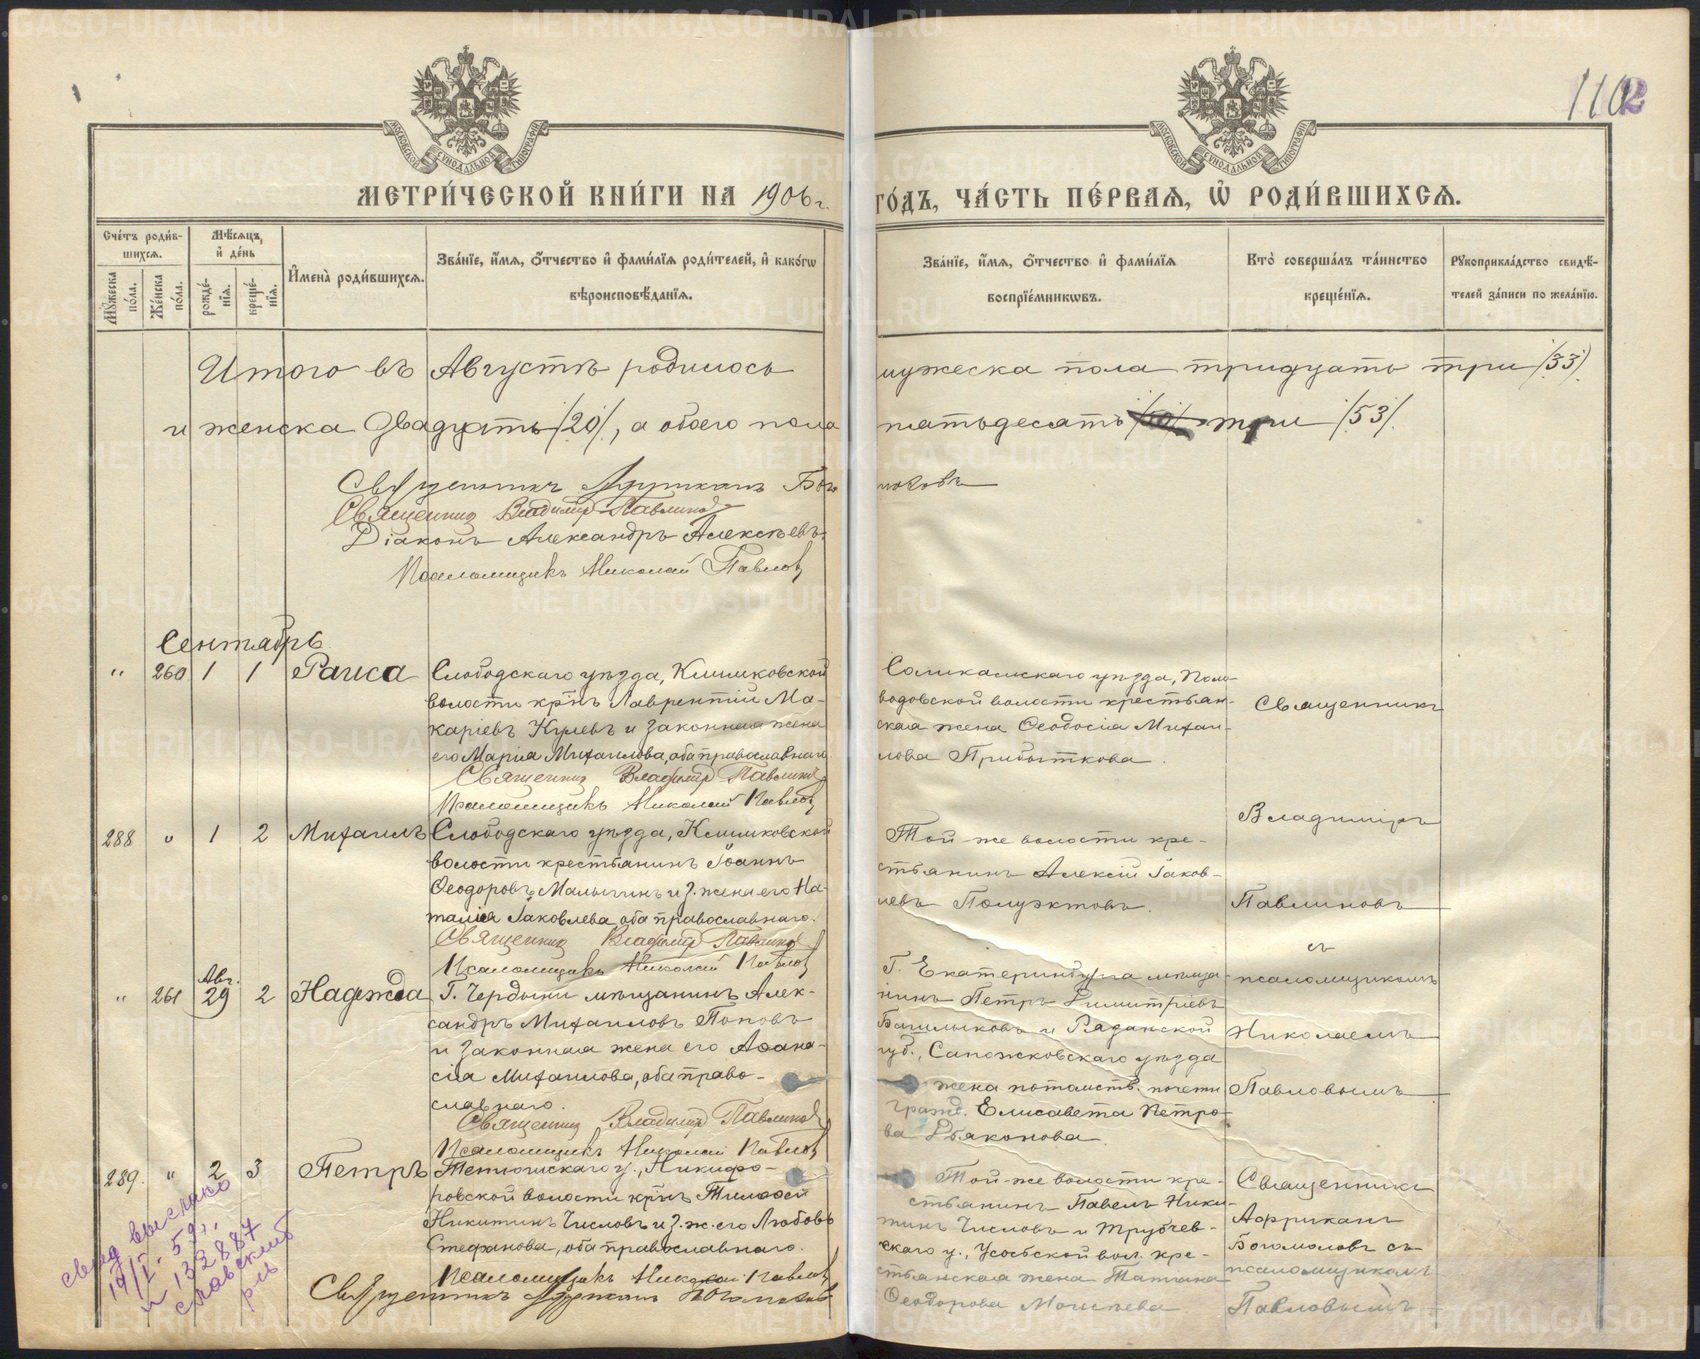 1102
МЕТРИ́ЧЕСКОЙ КНИ́ГИ НА 1906 г. ГО́ДЪ, ЧА́СТЬ ПЕ́РВАѦ, Ѡ҆ РОДИ́ВШИХСѦ.
Сче́тъ роди́в-
шихсѧ.
Мꙋ́жеска по́ла.
Же́нска по́ла.
Мѣ́сѧцъ,
и҆ де́нь
рожде́-
нїѧ.
креще́-
нїѧ.
И҆мена̀ роди́вшихсѧ.
Зва́нїе, и҆́мѧ, ѻ҆́тчество и҆ фами́лїѧ роди́телей, и҆ како́гѡ
вѣроисповѣ́данїѧ.
Зва́нїе, и҆́мѧ, ѻ҆́тчество и҆ фами́лїѧ
воспрїе́мникѡвъ.
Кто̀ соверша́лъ та́инство
креще́нїѧ.
Рꙋкоприкла́дство свидѣ́-
телей за́писи по жела́нїю.
Итого въ Августѣ родилось мужеска пола тридцать три /33/
и женска двадцать /20/, а обоего пола пятьдесятъ три /53/.
Священникъ Африканъ Богомоловъ
Священникъ Владимiръ Павлиновъ
Дiаконъ Александръ Алексѣевъ.
Псаломщикъ Николай Павловъ
Сентябрь
" 260 1 1 Раиса
Слободскаго уѣзда, Климковской
волости кр͡нъ Лаврентiй Ма-
карiевъ Кулевъ и законная жена
его Марiя Михаилова, оба православнаго
Священникъ Владимiръ Павлиновъ
Псаломщикъ Николай Павловъ
Соликамскаго уѣзда, Поло-
водовской волости крестьян-
ская жена Ѳеодосiя Михаи-
лова Прибыткова.
Священникъ
Владимiръ
Павлиновъ
съ
псаломщикомъ
Николаемъ
Павловымъ
288 " 1 2 Михаилъ
Слободскаго уѣзда, Климковской
волости крестьянинъ Iоаннъ
Ѳеодоровъ Малыгинъ и з. жена его На-
талiя Iаковлева, оба православнаго.
Священникъ Владимiръ Павлиновъ
Псаломщикъ Николай Павловъ
Той-же волости кре-
стьянинъ Алексiй Iаков-
левъ Полуэктовъ.
" 261 Авг. 29 2 Надежда
Г. Чердыни мѣщанинъ Алек-
сандръ Михаиловъ Поповъ
и законная жена его Аѳана-
сiя Михаилова, оба право-
славнаго.
Священникъ Владимiръ Павлиновъ
Псаломщикъ Николай Павловъ
Г. Екатеринбурга мѣща-
нинъ Петръ Димитрiевъ
Башлыковъ и Рязанской
губ., Сапожковскаго уѣзда
жена потомств. почетн.
гражд. Елисавета Петро-
ва Дьяконова.
289. " 2 3 Петръ
Тетюшскаго у., Никифо-
ровской волости кр͡нъ Тимоѳей
Никитинъ Числовъ и з. ж. его Любовь
Стефанова, оба православнаго.
Псаломщикъ Николай Павловъ
Священникъ Африканъ Богомоловъ
Той-же волости кре-
стьянинъ Павелъ Ники-
тинъ Числовъ и Трубчев-
скаго у., Усохской вол. кре-
стьянская жена Татiана
Ѳеодорова Моисеева
Священникъ
Африканъ
Богомоловъ съ
псаломщикомъ
Павловымъ
свид выслано
19/I-59 г.
n 132887